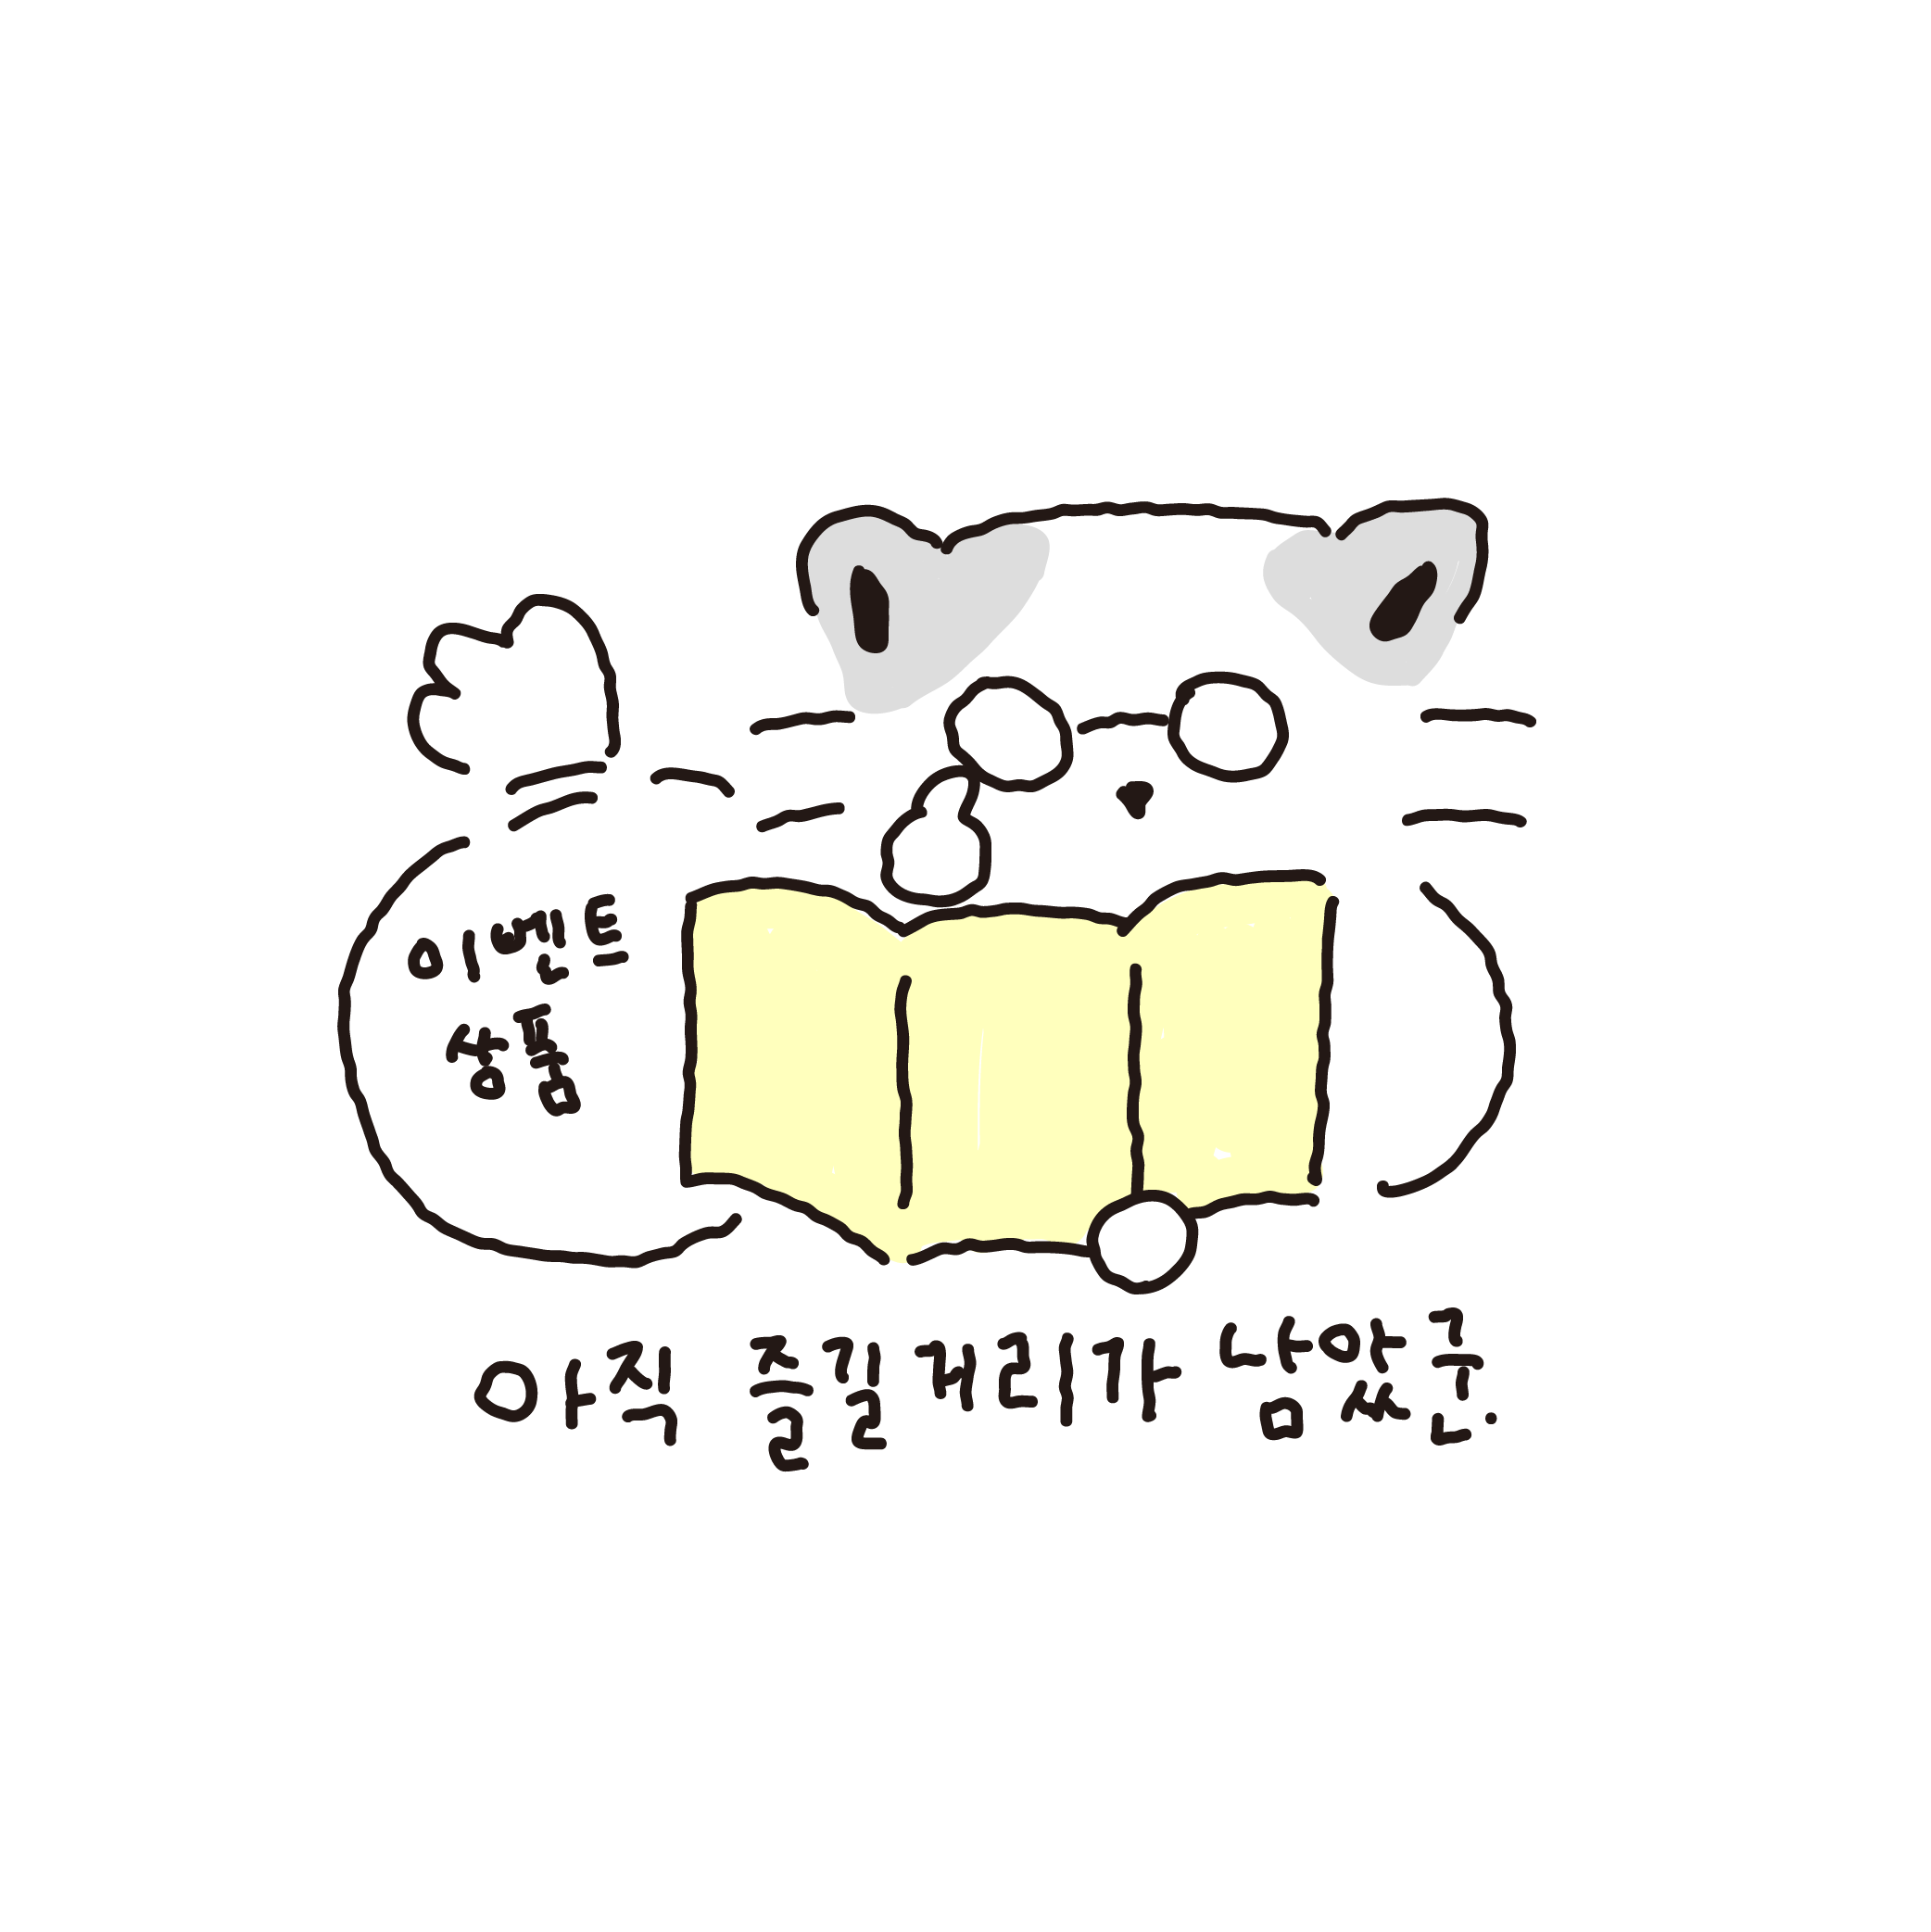 이벤트
상품
아직 즐길거리가 남았군.